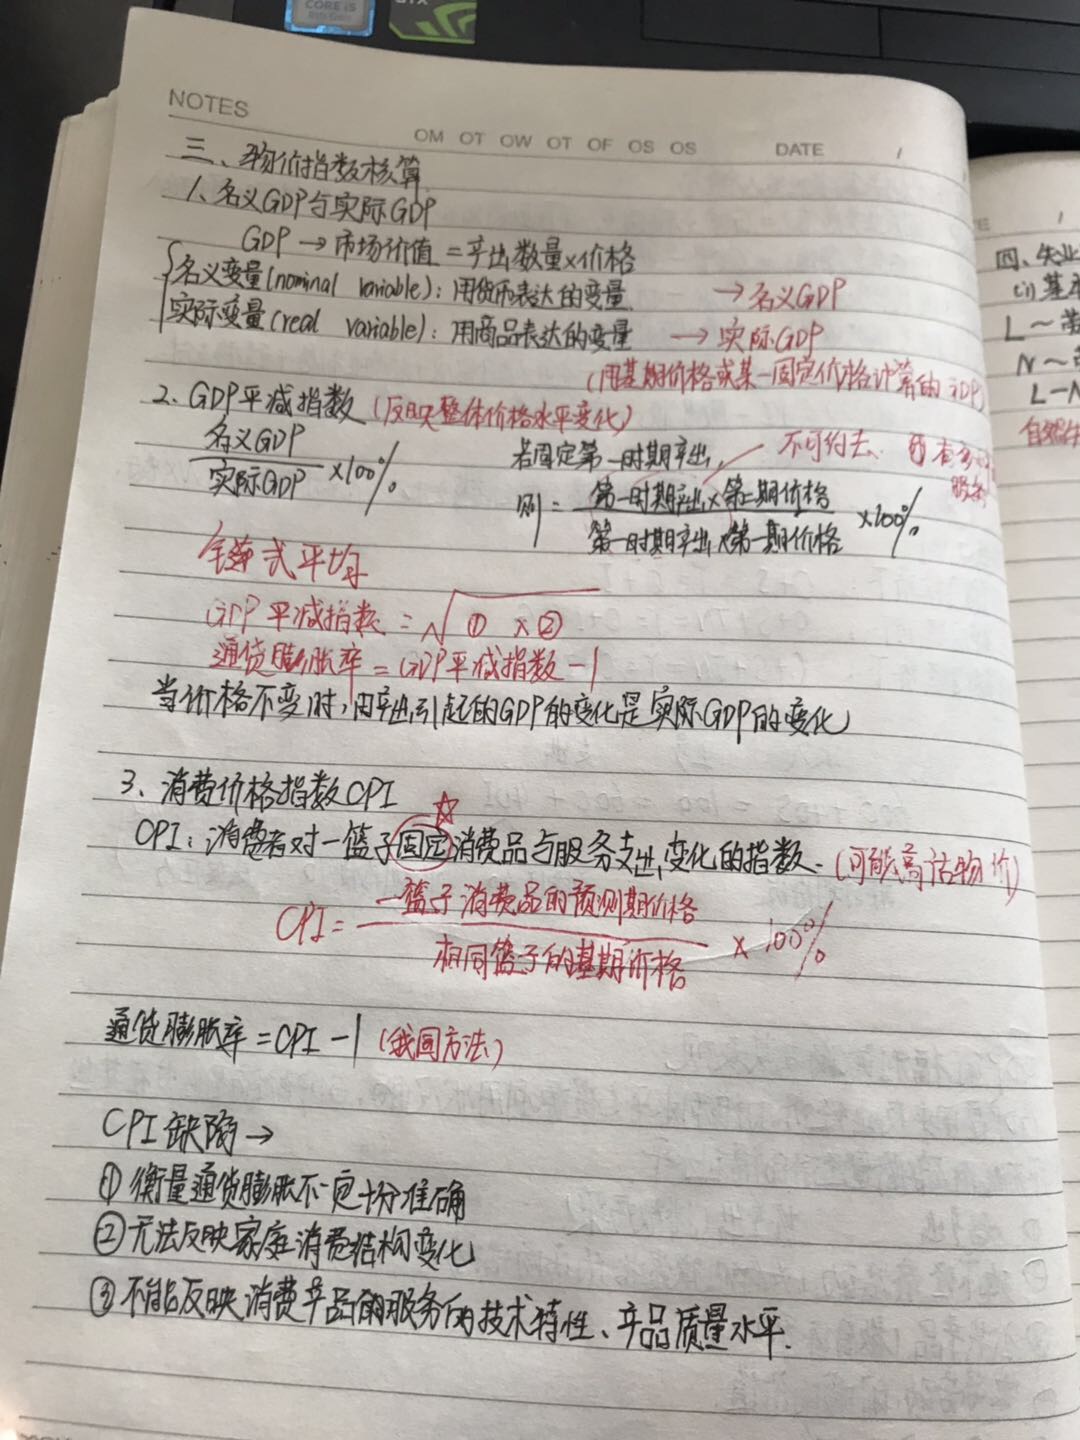 CORE i5
8th Gen
GTX
NOTES
OM OT OW OT OF OS OS
DATE /
三、物价指数核算
1、名义GDP与实际GDP
GDP → 市场价值 = 产出数量×价格
名义变量(nominal variable): 用货币表达的变量 → 名义GDP
实际变量(real variable): 用商品表达的变量 → 实际GDP
(用基期价格或某一固定价格计算的GDP)
2. GDP平减指数 (反映整体价格水平变化)
名义GDP
实际GDP ×100%
若固定第一时期产出, 不可约去
服务
则 = 第一时期产出×第二期价格
第一时期产出×第一期价格 ×100%
链式平均
GDP平减指数 = √① ×②
通货膨胀率 = GDP平减指数 -1
当价格不变时, 由产出引起的GDP的变化是实际GDP的变化
3、消费价格指数CPI
CPI: 消费者对一篮子固定消费品与服务支出变化的指数. (可能高估物价)
CPI = 一篮子消费品的预测期价格
相同篮子的基期价格 × 100%
通货膨胀率 = CPI -1 (我国方法)
CPI缺陷 →
① 衡量通货膨胀不一定十分准确
② 无法反映家庭消费结构变化
③ 不能反映消费产品的服务的技术特性、产品质量水平.
四、失业
(1) 基本
L ~
N ~
L-N